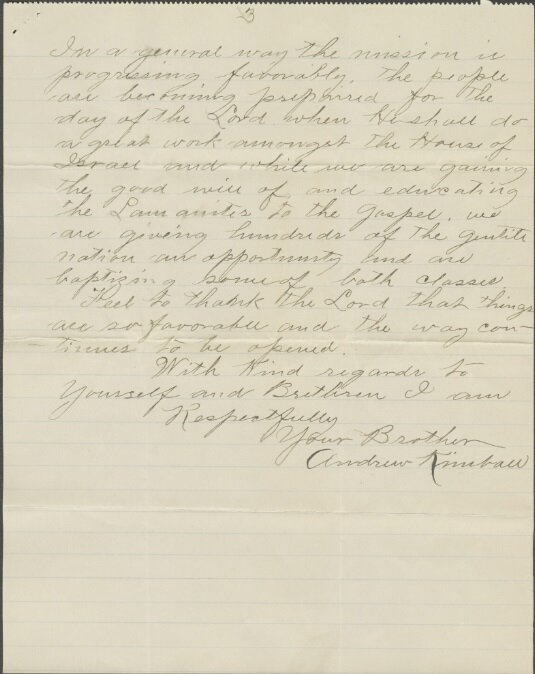 3
In a general way the mission is
progressing favorably. The people
are becoming prepairred for the
day of the Lord when He shall do
a great work amongst the House of
Israel and while we are gaining
the good will of and educating
the Lamanites to the Gospel. we
are giving hundreds of the gentile
nation an opportunity and are
baptising some of both classes
Feel to thank the Lord that things
are so favorable and the way con-
tinues to be opened.
With Kind regards to
Yourself and Brethren I am
Respectfully
Your Brother
Andrew Kimball